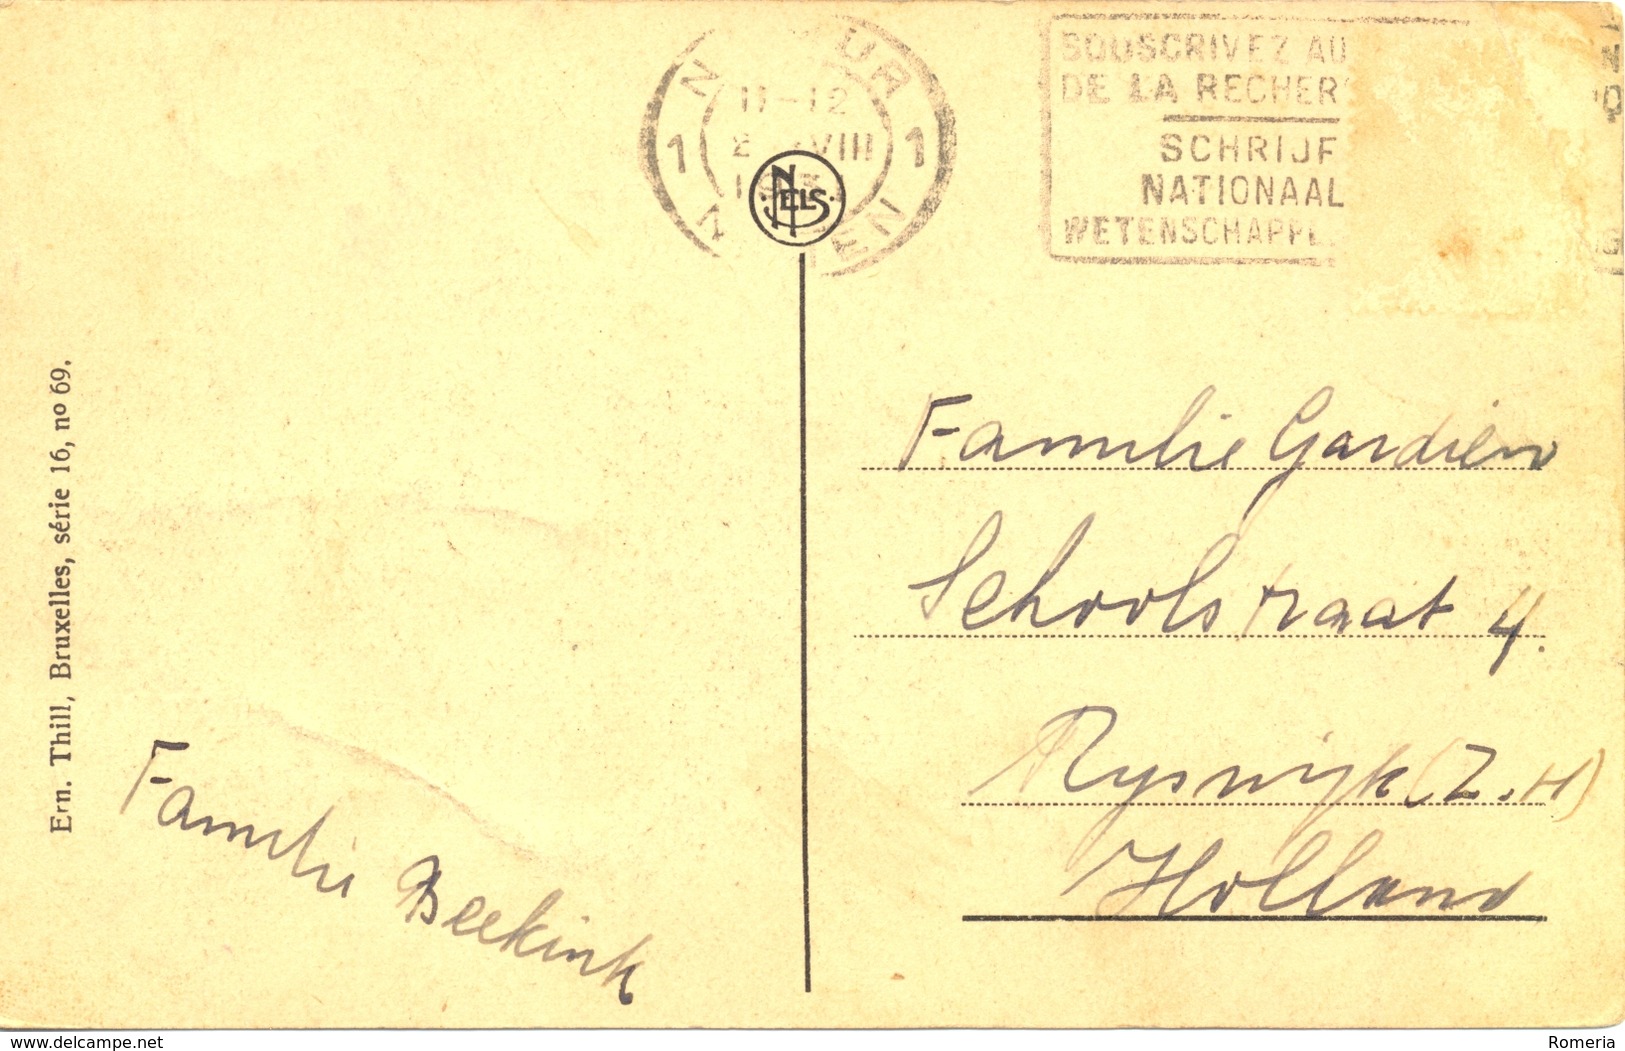 N UR
11-12
VIII
1 1
EN
NELS
SOUSCRIVEZ AU
DE LA RECHER
SCHRIJF
NATIONAAL
WETENSCHAPPE
Ern. Thill, Bruxelles, série 16, no 69.
Familie Gardien
Schoolstraat 4.
Ryswijk (Z.H)
Holland
Familie Beekink
delcampe.net
Romeria